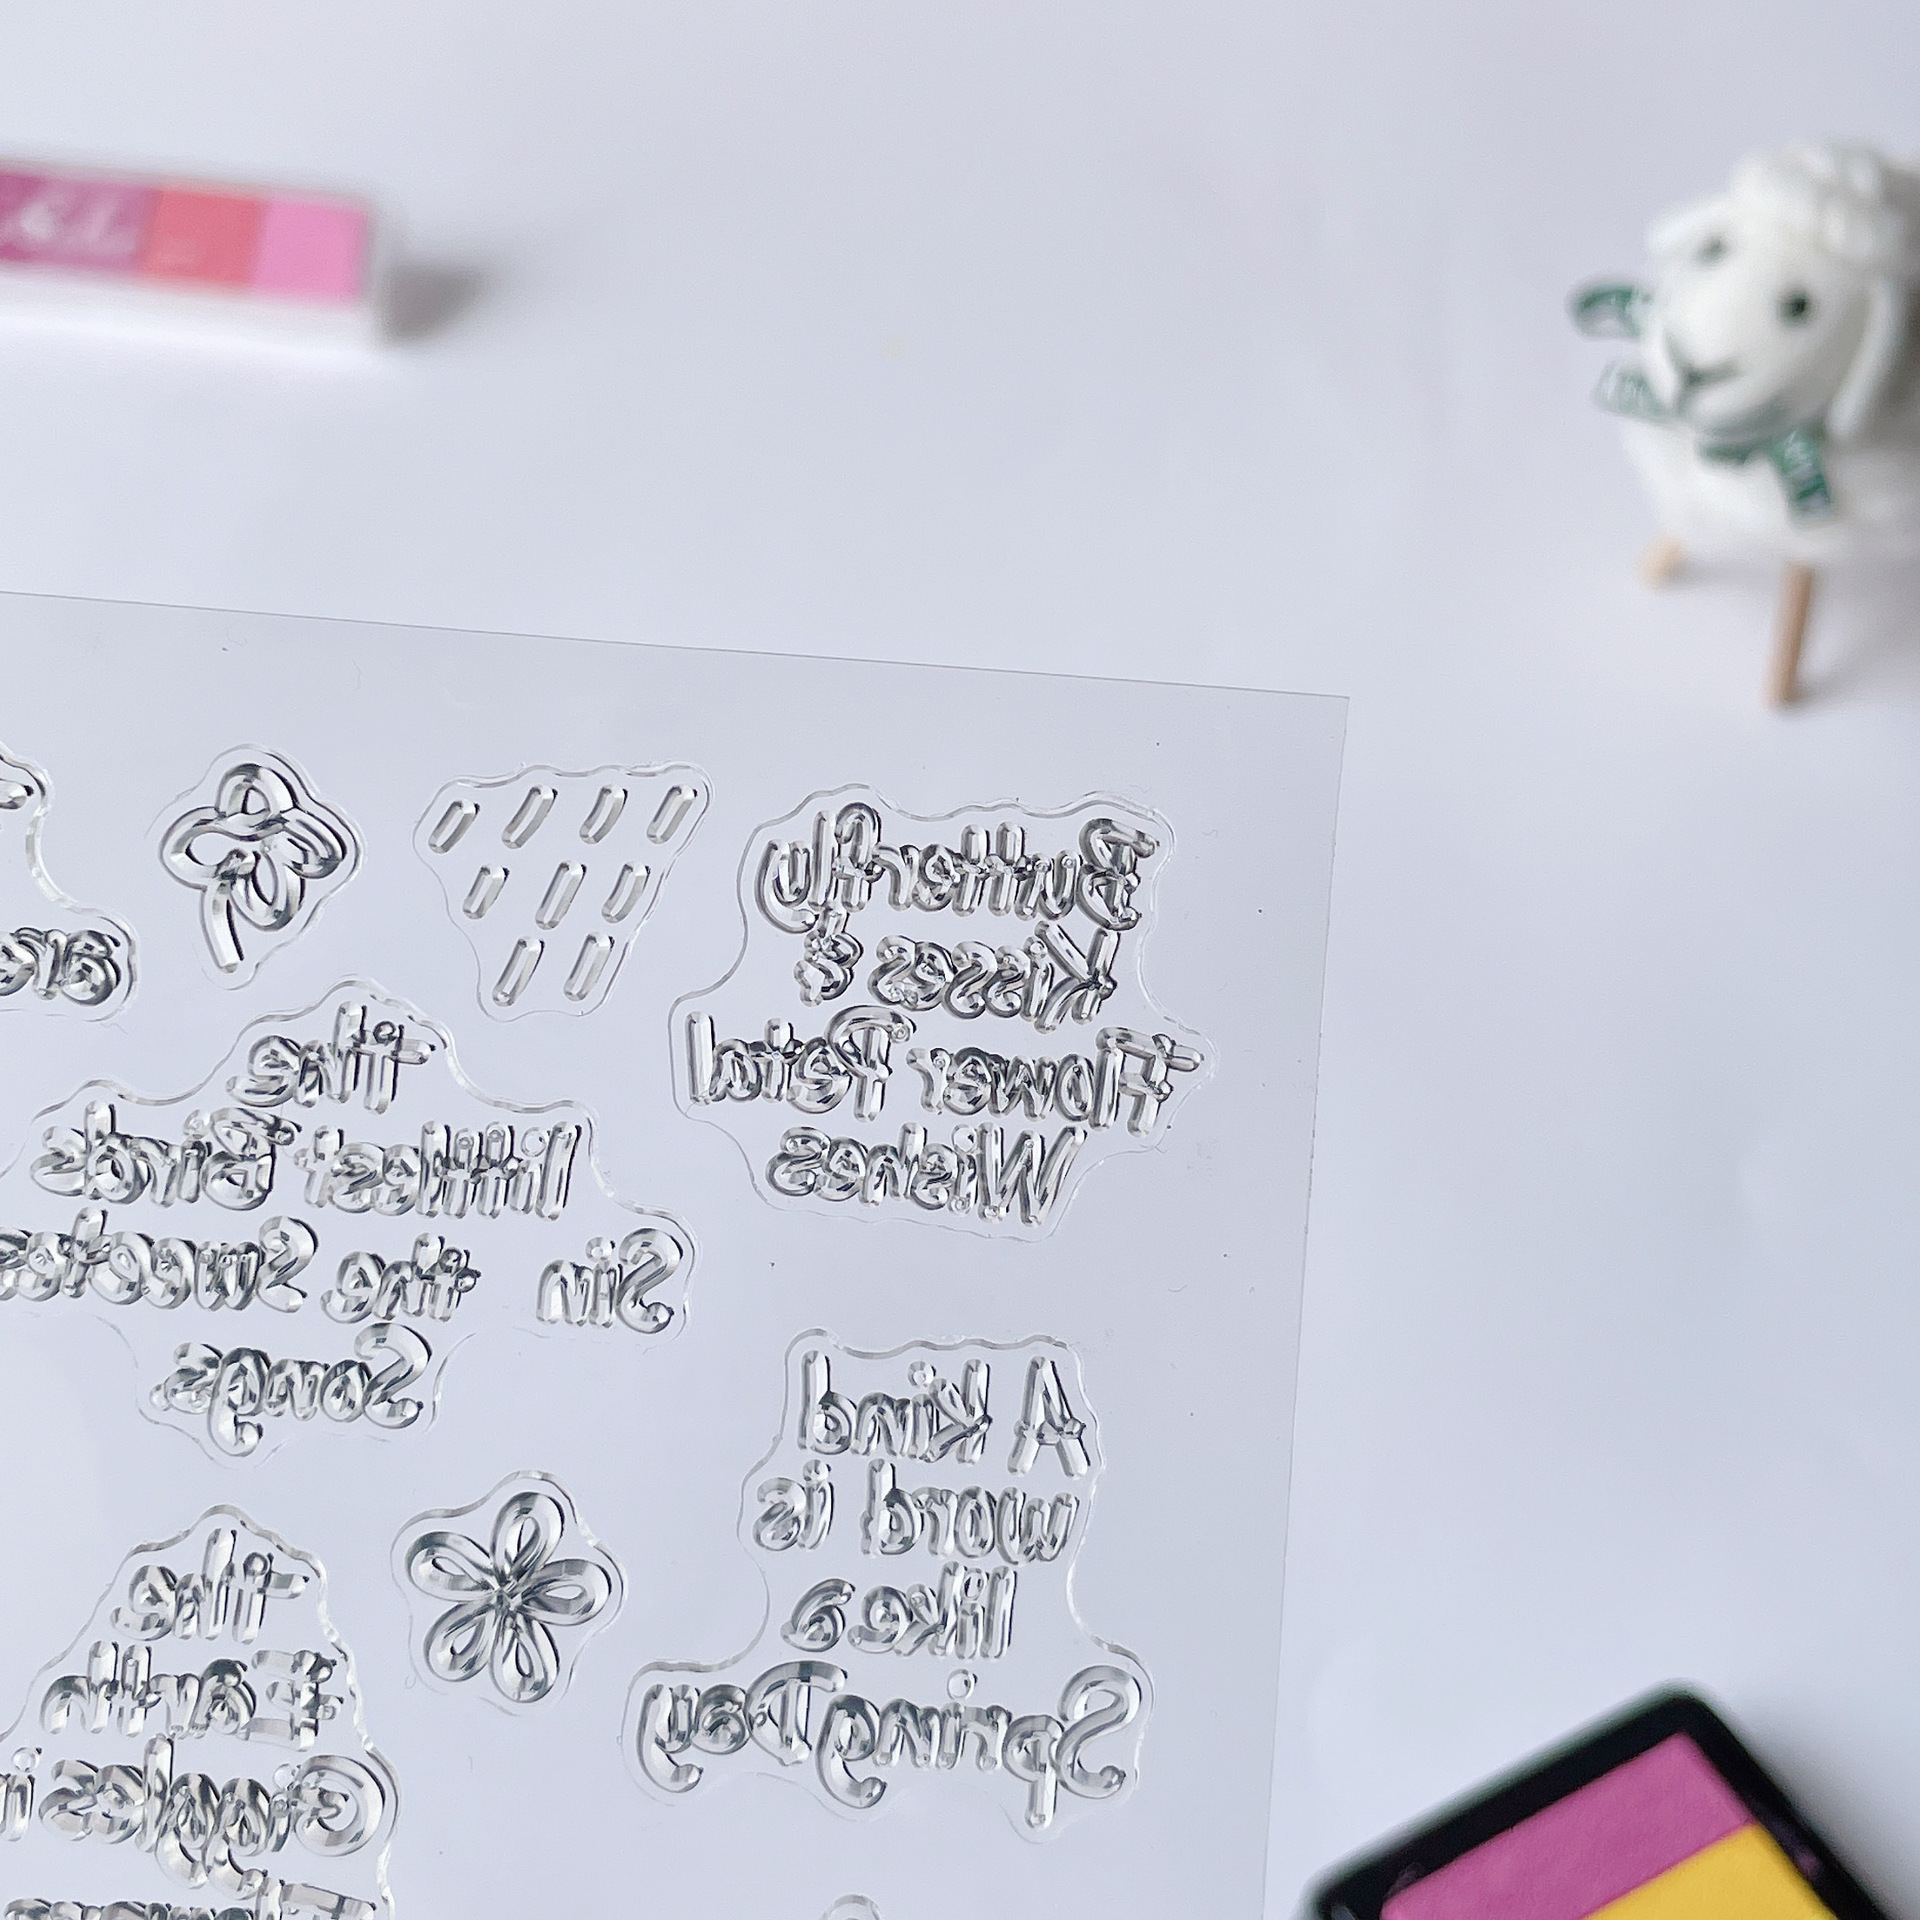 Butterfly
Kisses &
Flower Petal
Wishes
the
littlest Birds
Sin the Sweetes
Songs
A Kind
word is
like a
Spring Day
the
Earth
Giggles in
are